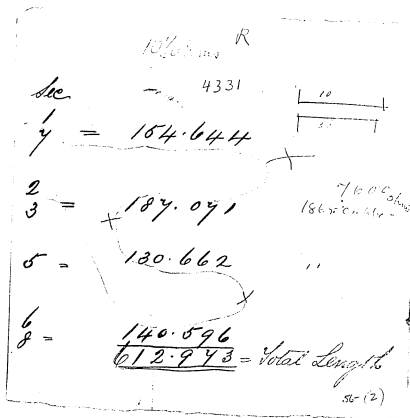 R
Sec 4331
10
1
7 = 154.644
2
3 = 187.071
5 = 130.662 "
6
8 = 140.596
612.973 = Total Length
(2)